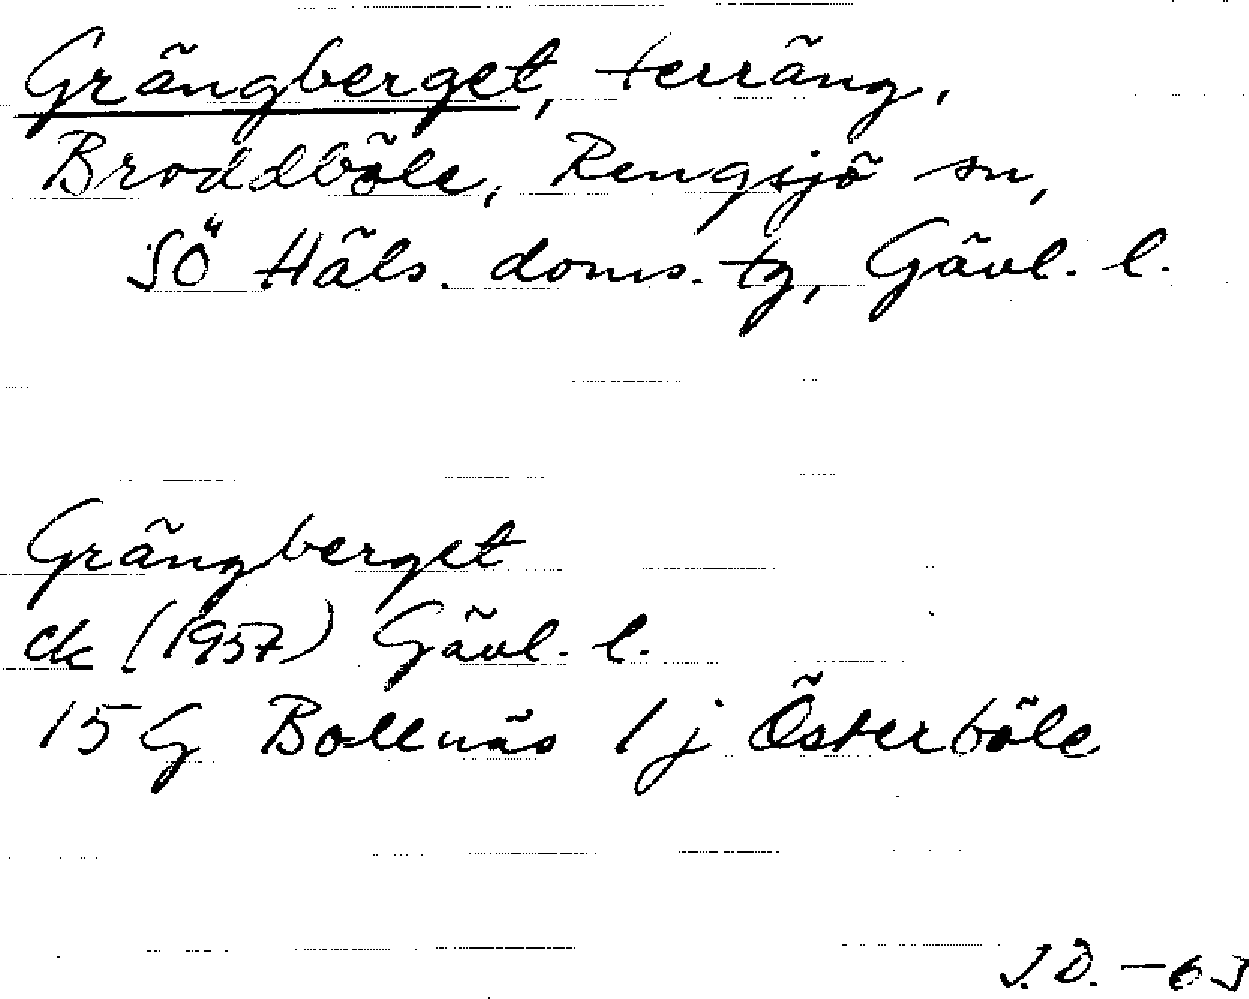 Grängberget, terräng,
Broddböle, Rengsjö sn,
SÖ Häls. doms. tg, Gävl. l.
Grängberget
ek (1957) Gävl. l.
15 G Bollnäs 1 j Österböle
J.Ö. - 63